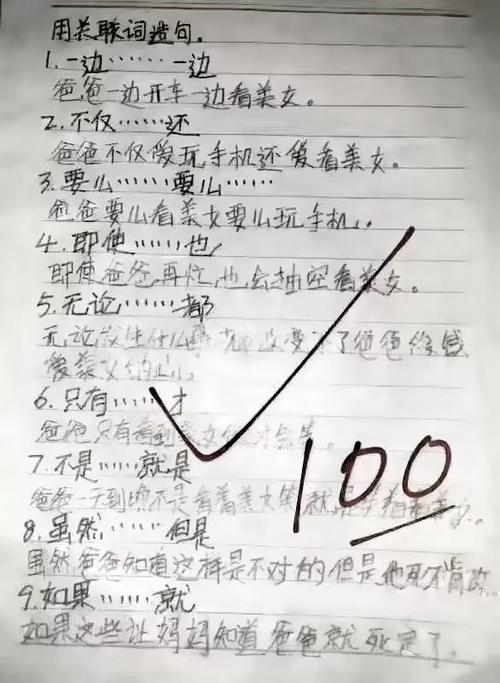 用关联词造句。
1.一边……一边
爸爸一边开车一边看美女。
2.不仅……还
爸爸不仅爱玩手机还爱看美女。
3.要么……要么……
爸爸要么看美女要么玩手机。
4.即使……也
即使爸爸再忙,也会抽空看美女。
5.无论……都
无论发生什么事都改变不了爸爸
爱美女的心。
6.只有……才
爸爸只有看到美女才会笑。
7.不是……就是
爸爸一天到晚不是看着美女笑就是
8.虽然……但是
虽然爸爸知道这样是不对的但是他死不肯改。
9.如果……就
如果这些让妈妈知道爸爸就死定了。
100